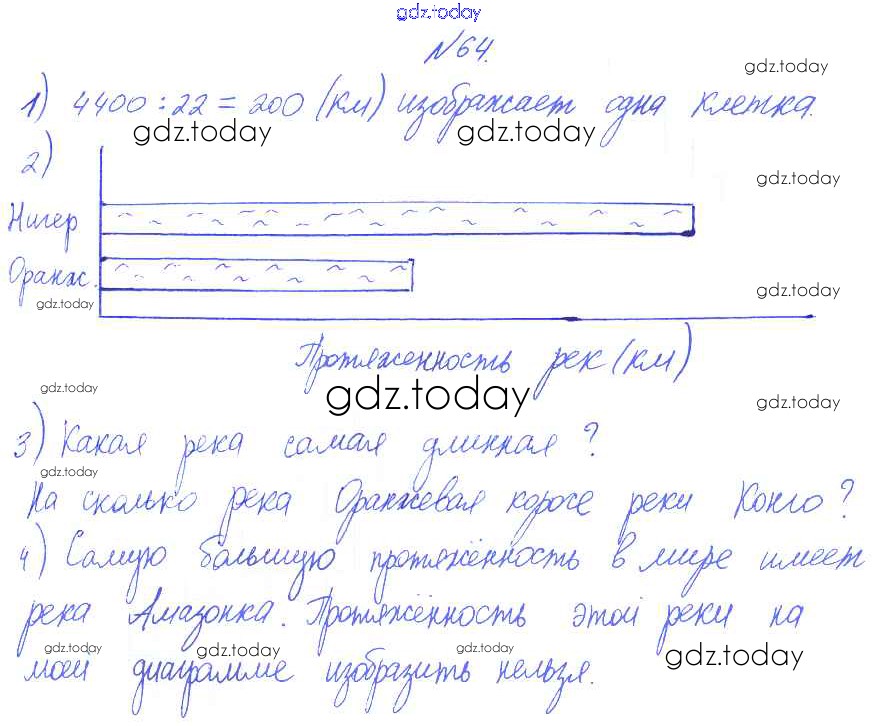 gdz.today
№64.
gdz.today
1) 4400 : 22 = 200 (км) изображает одна клетка.
gdz.today gdz.today
2)
gdz.today
Нигер
Оранж.
gdz.today
gdz.today
Протяженность рек (км)
gdz.today
gdz.today
gdz.today
3) Какая река самая длинная?
gdz.today
На сколько река Оранжевая короче реки Конго?
4) Самую большую протяжённость в мире имеет
река Амазонка. Протяжённость этой реки на
gdz.today gdz.today gdz.today gdz.today
моей диаграмме изобразить нельзя.